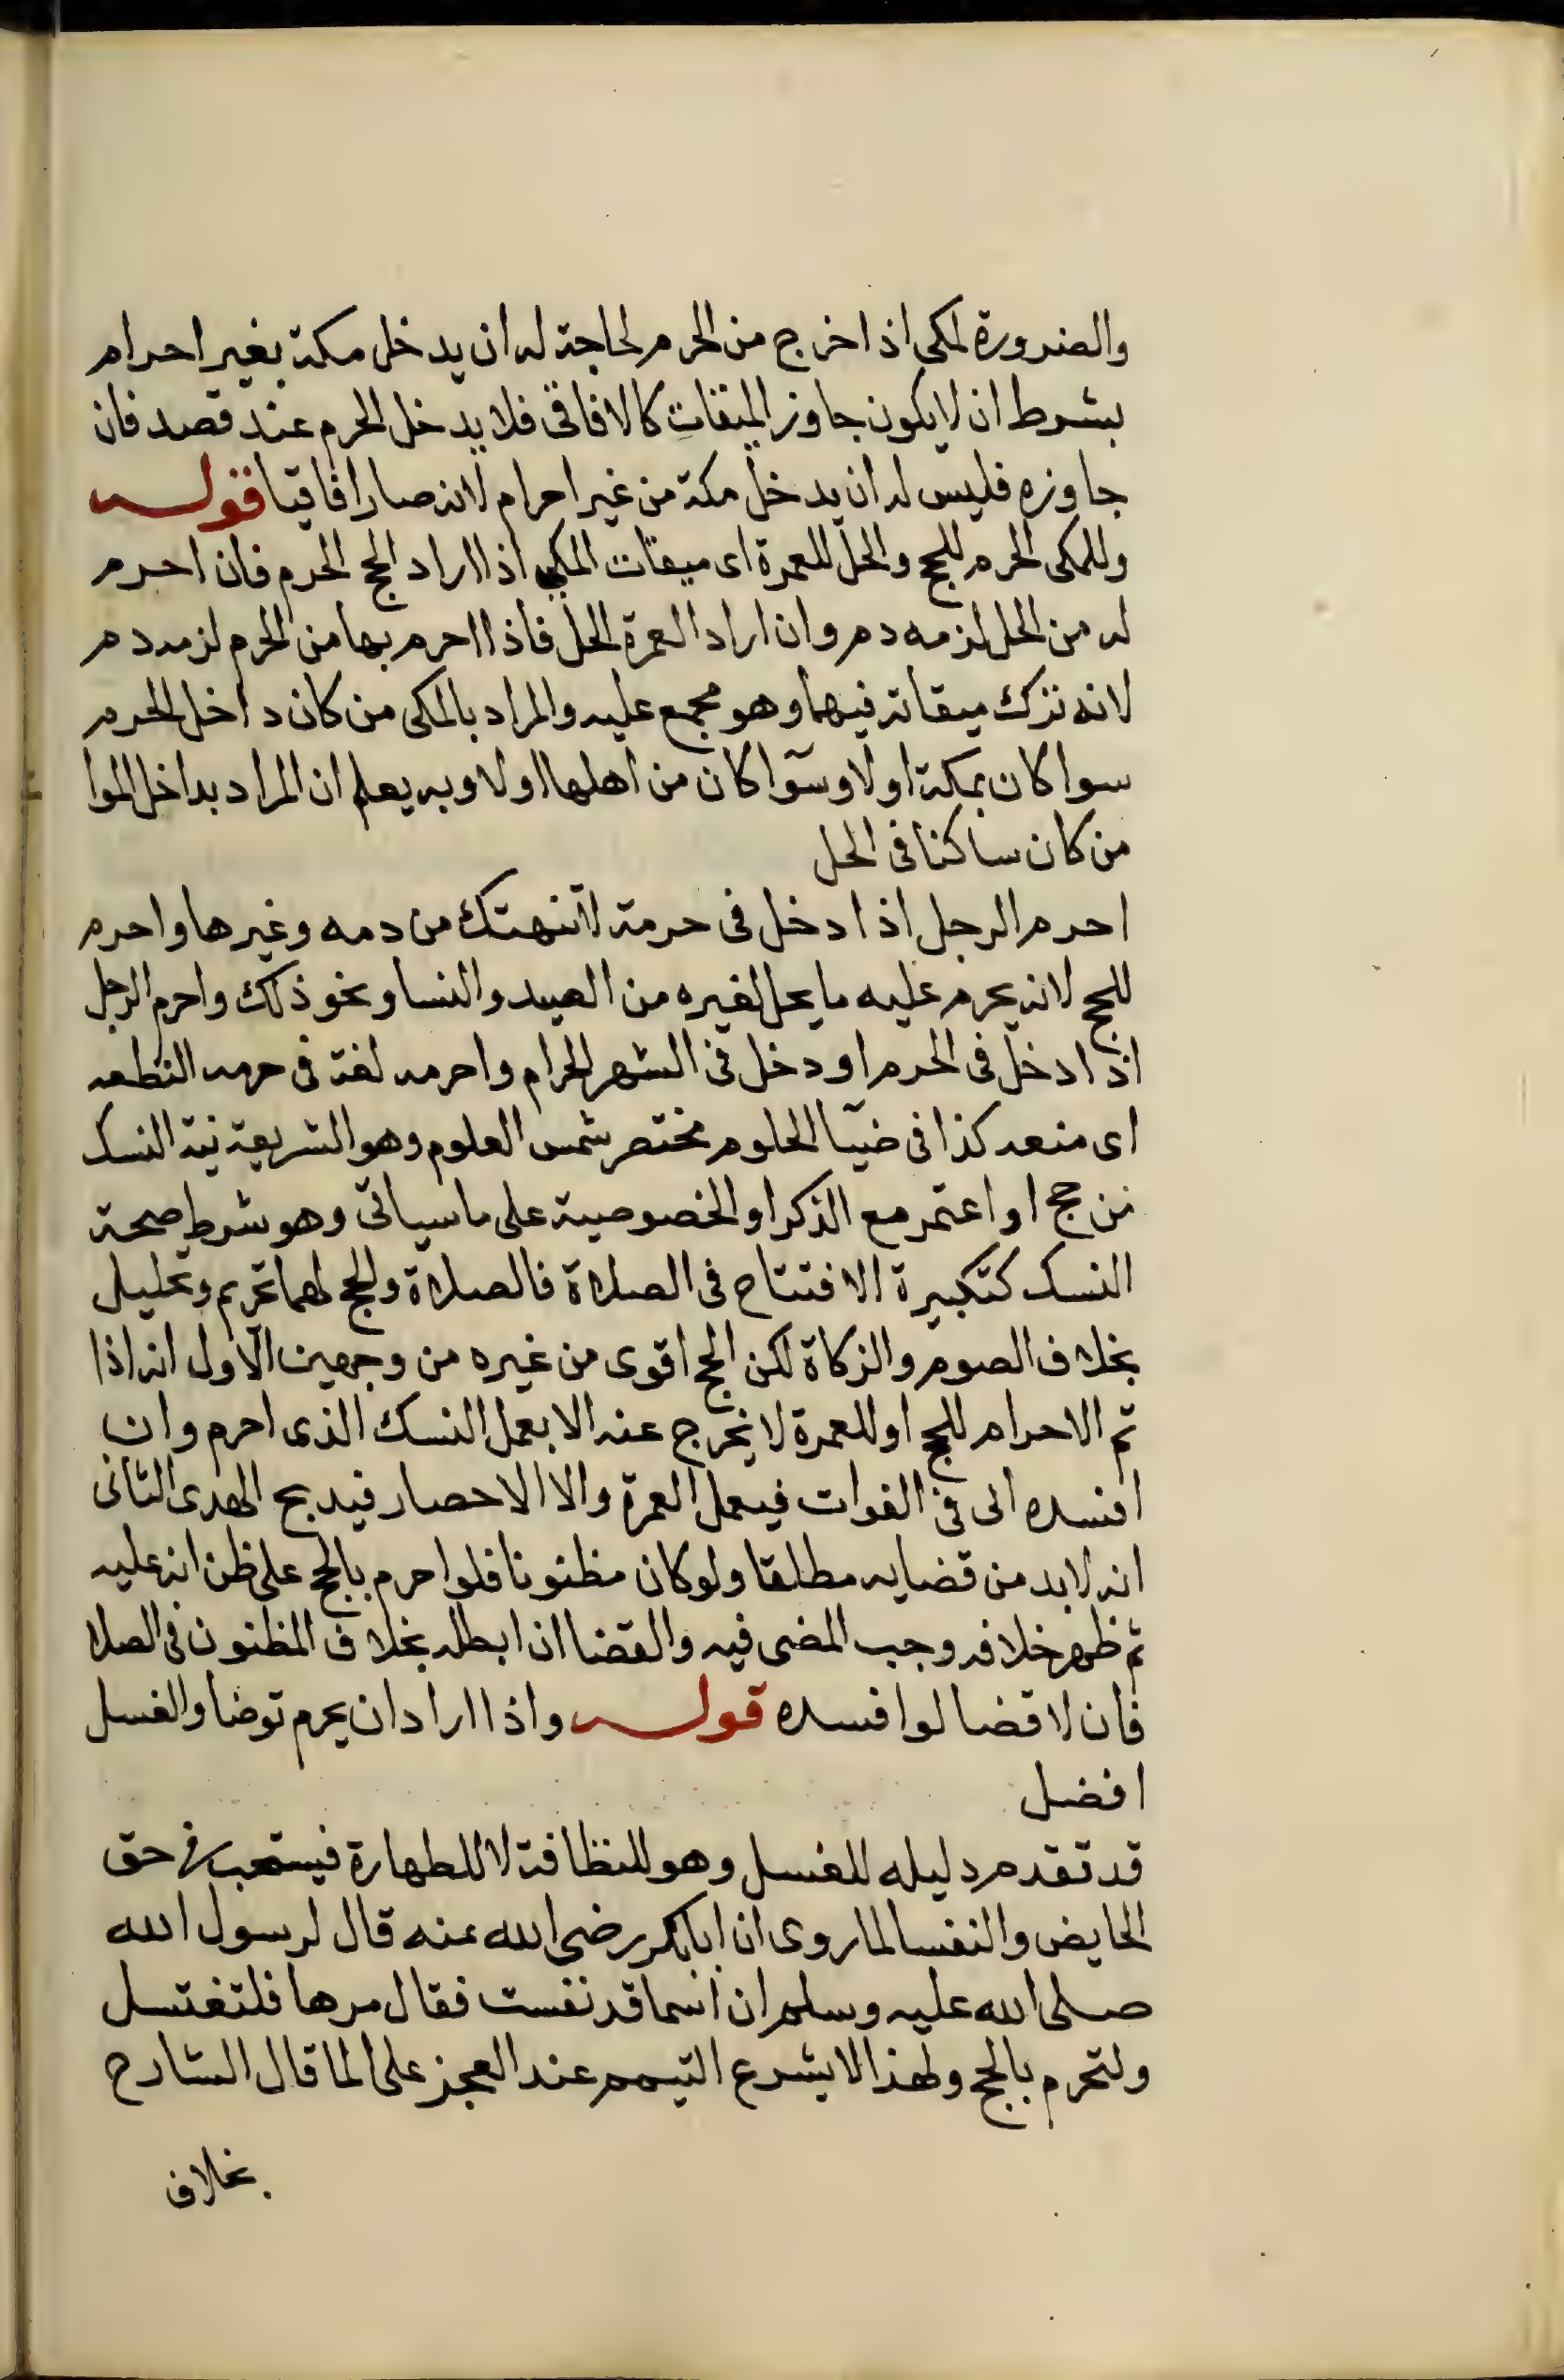 والضرورة لمكي اذا خرج من الحرم لحاجة له ان يدخل مكة بغير احرام
بشرط ان لا يكون جاوز الميقات كالافاقى فلا يدخل الحرم عند قصد فان
جاوزه فليس له ان يدخل مكة من غير احرام لانه صار افاقيا قوله
وللمكى الحرم للحج والحل للعمرة اى ميقات المكي اذا اراد الحج الحرم فان احرم
له من الحل لزمه دم وان اراد العمرة الحل فاذا احرم بها من الحرم لزمه دم
لانه ترك ميقاته فيهما وهو مجمع عليه والمراد بالمكى من كان داخل الحرم
سوا كان بمكة اولا وسوآ كان من اهلها اولا وبه يعلم ان المراد بداخل الموا
من كان ساكنا فى الحل
احرم الرجل اذا دخل فى حرمة لا تنهتك من دمه وغيرها واحرم
للحج لانه يحرم عليه ما يحل لغيره من الصيد والنسا ونحو ذلك واحرم الرجل
اذا دخل فى الحرم او دخل فى الشهر الحرام واحرمه لغة فى حرمه
اى منعه كذا فى ضيآ الحلوم مختصر شمس العلوم وهو الشريعة نية النسك
من حج او اعتمر مع الذكر او الخصوصية على ما سياتى وهو شرط صحة
النسك كتكبيرة الافتتاح فى الصلاة فالصلاة والحج لهما تحريم وتحليل
بخلاف الصوم والزكاة لكن الحج اقوى من غيره من وجهين الاول انه اذا
تم الاحرام للحج او للعمرة لا يخرج عنه الا بعمل النسك الذى احرم وان
افسده الى فى الفوات فيعمل العمرة والا الاحصار فيدبح الهدى الثانى
انه لا بد من قضايه مطلقا ولو كان مظنونا فلو احرم بالحج على ظن انه عليه
ثم ظهر خلافه وجب المضى فيه والقضا ان ابطله بخلاف المظنون فى الصلا
فان لا قضا لو افسده قوله واذا اراد ان يحرم توضا والغسل
افضل
قد تقدم دليله للغسل وهو للنظافة لا للطهارة فيستحب فى حق
الحايض والنفسا لما روى ان ابابكر رضى الله عنه قال لرسول الله
صلى الله عليه وسلم ان اسما قد نفست فقال مرها فلتغتسل
ولتحرم بالحج ولهذا لا يشرع التيمم عند العجز على الما قال الشارح
بخلاف